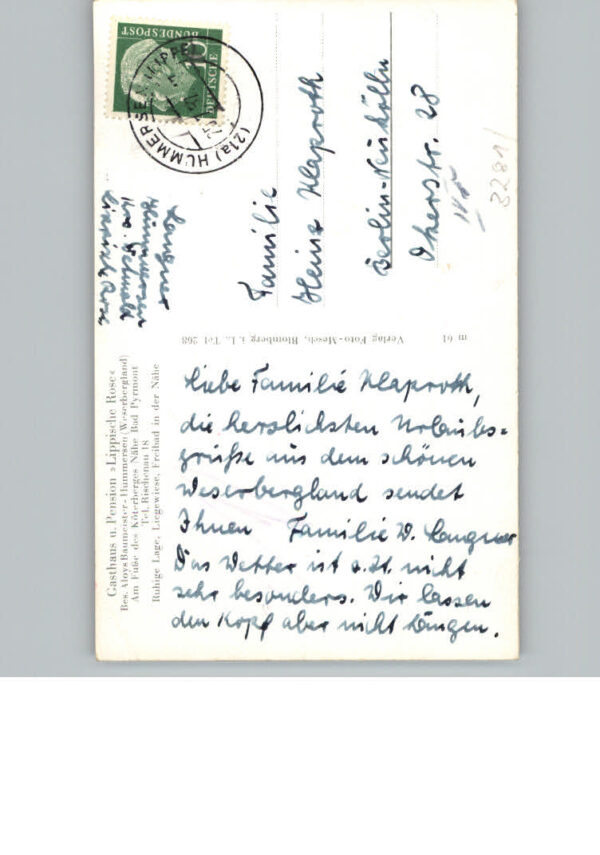 Gasthaus u. Pension »Lippische Rose«
Bes. Aloys Baumeister-Hummersen (Weserbergland)
Am Fuße des Köterberges Nähe Bad Pyrmont
Tel. Rischenau 18
Ruhige Lage, Liegewiese, Freibad in der Nähe
Liebe Familie Klaproth,
die herzlichsten Urlaubs=
grüße aus dem schönen
Weserbergland sendet
Ihnen Familie W. Langner
Das Wetter ist z. Zt. nicht
sehr besonders. Wir lassen
den Kopf aber nicht hängen.
m 61 Verlag Foto-Mesch, Blomberg i. L., Tel 268
Langner
Hummersen
Lippische Rose
DEUTSCHE
BUNDESPOST
10
(21a) HUMMERSEN (LIPPE)
Familie
Heinz Klaproth
Berlin-Neukölln
Okerstr. 28
3281